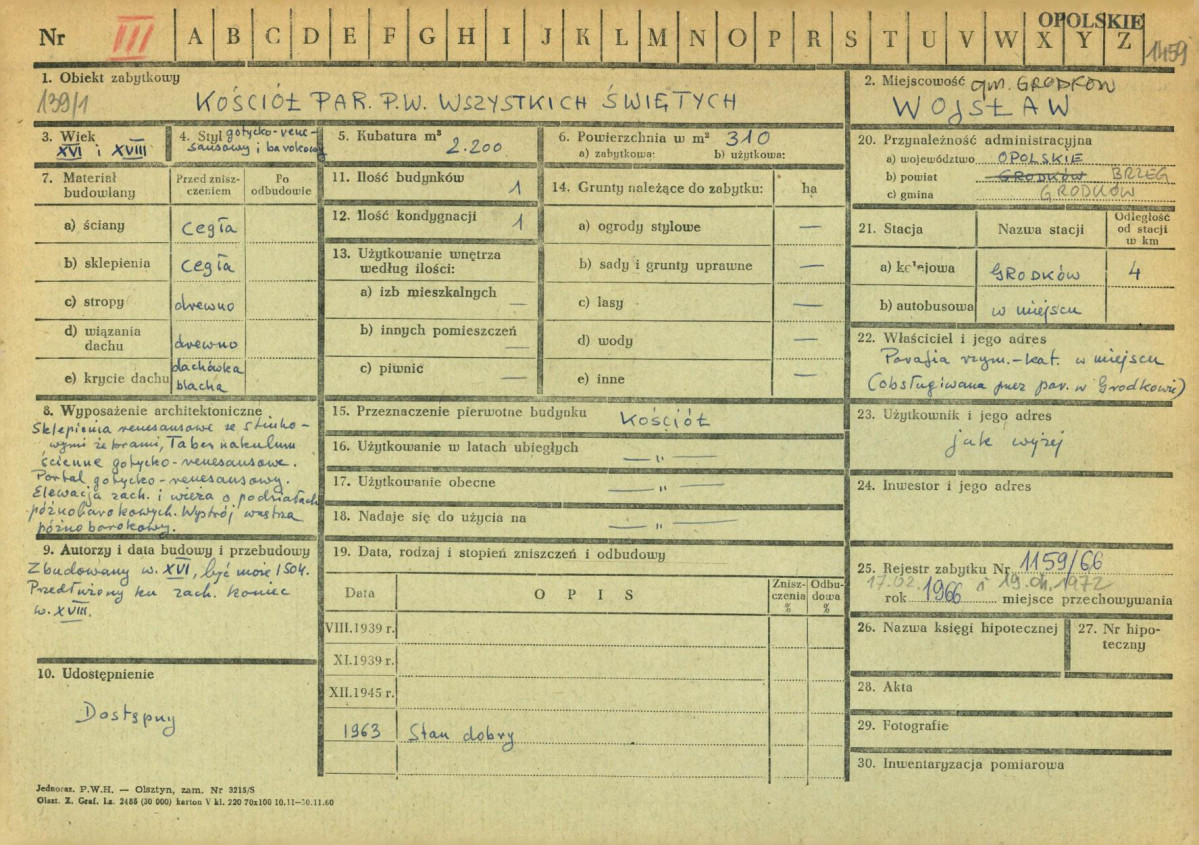 Nr III A B C D E F G H I J K L M N O P R S T U V W X Y Z
OPOLSKIE
1459
1. Obiekt zabytkowy
139/1
KOŚCIÓŁ PAR. P.W. WSZYSTKICH ŚWIĘTYCH
2. Miejscowość gm. GRODKÓW
WOJSŁAW
3. Wiek
XVI i XVIII
4. Styl gotycko-rene-
sansowy i barokowy
5. Kubatura m³
2.200
6. Powierzchnia w m² 310
a) zabytkowa: b) użytkowa:
7. Materiał
budowlany
Przed znisz-
czeniem
Po
odbudowie
a) ściany cegła
b) sklepienia cegła
c) stropy drewno
d) wiązania
dachu drewno
e) krycie dachu dachówka
blacha
8. Wyposażenie architektoniczne
Sklepienia renesansowe ze stiuko-
wymi żebrami, Tabernakulum
ścienne gotycko-renesansowe.
Portal gotycko-renesansowy.
Elewacja zach. i wieża o podziałach
późnobarokowych. Wystrój wnętrza
późnobarokowy.
9. Autorzy i data budowy i przebudowy
Zbudowany w. XVI, być może 1504.
Przedłużony ku zach. koniec
w. XVIII.
10. Udostępnienie
Dostępny
11. Ilość budynków 1
12. Ilość kondygnacji 1
13. Użytkowanie wnętrza
według ilości:
a) izb mieszkalnych —
b) innych pomieszczeń —
c) piwnic —
14. Grunty należące do zabytku: ha
a) ogrody stylowe —
b) sady i grunty uprawne —
c) lasy —
d) wody —
e) inne —
15. Przeznaczenie pierwotne budynku Kościół
16. Użytkowanie w latach ubiegłych — „ —
17. Użytkowanie obecne — „ —
18. Nadaje się do użycia na — „ —
19. Data, rodzaj i stopień zniszczeń i odbudowy
Data OPIS Znisz-
czenia
% Odbu-
dowa
%
VIII.1939 r.
XI.1939 r.
XII.1945 r.
1963 Stan dobry
20. Przynależność administracyjna
a) województwo OPOLSKIE
b) powiat GRODKÓW BRZEG
c) gmina GRODKÓW
21. Stacja Nazwa stacji Odległość
od stacji
w km
a) kolejowa GRODKÓW 4
b) autobusowa w miejscu
22. Właściciel i jego adres
Parafia rzym.-kat. w miejscu
(obsługiwana przez par. w Grodkowie)
23. Użytkownik i jego adres
jak wyżej
24. Inwestor i jego adres
25. Rejestr zabytku Nr 1159/66
17.02. i 19.04.1972
rok 1966 miejsce przechowywania
26. Nazwa księgi hipotecznej
27. Nr hipo-
teczny
28. Akta
29. Fotografie
30. Inwentaryzacja pomiarowa
Jednoraz. P.W.H. — Olsztyn, zam. Nr 3215/S
Olszt. Z. Graf. Lz. 2485 (30 000) karton V kl. 220 70x100 10.11—30.11.60